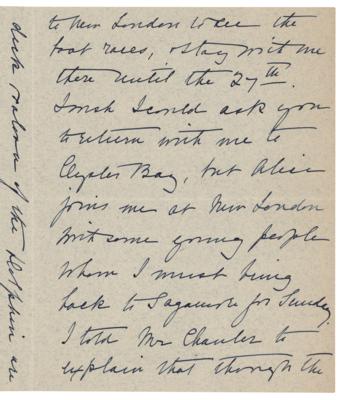 to New London to see the
boat races, & stay with me
there until the 27th.
I wish I could ask you
to return with me to
Oyster Bay, but Alice
joins me at New London
with some young people
whom I must bring
back to Sagamore for Sunday.
I told Mr Chanler to
explain that through the
deck saloon of the Dolphin are